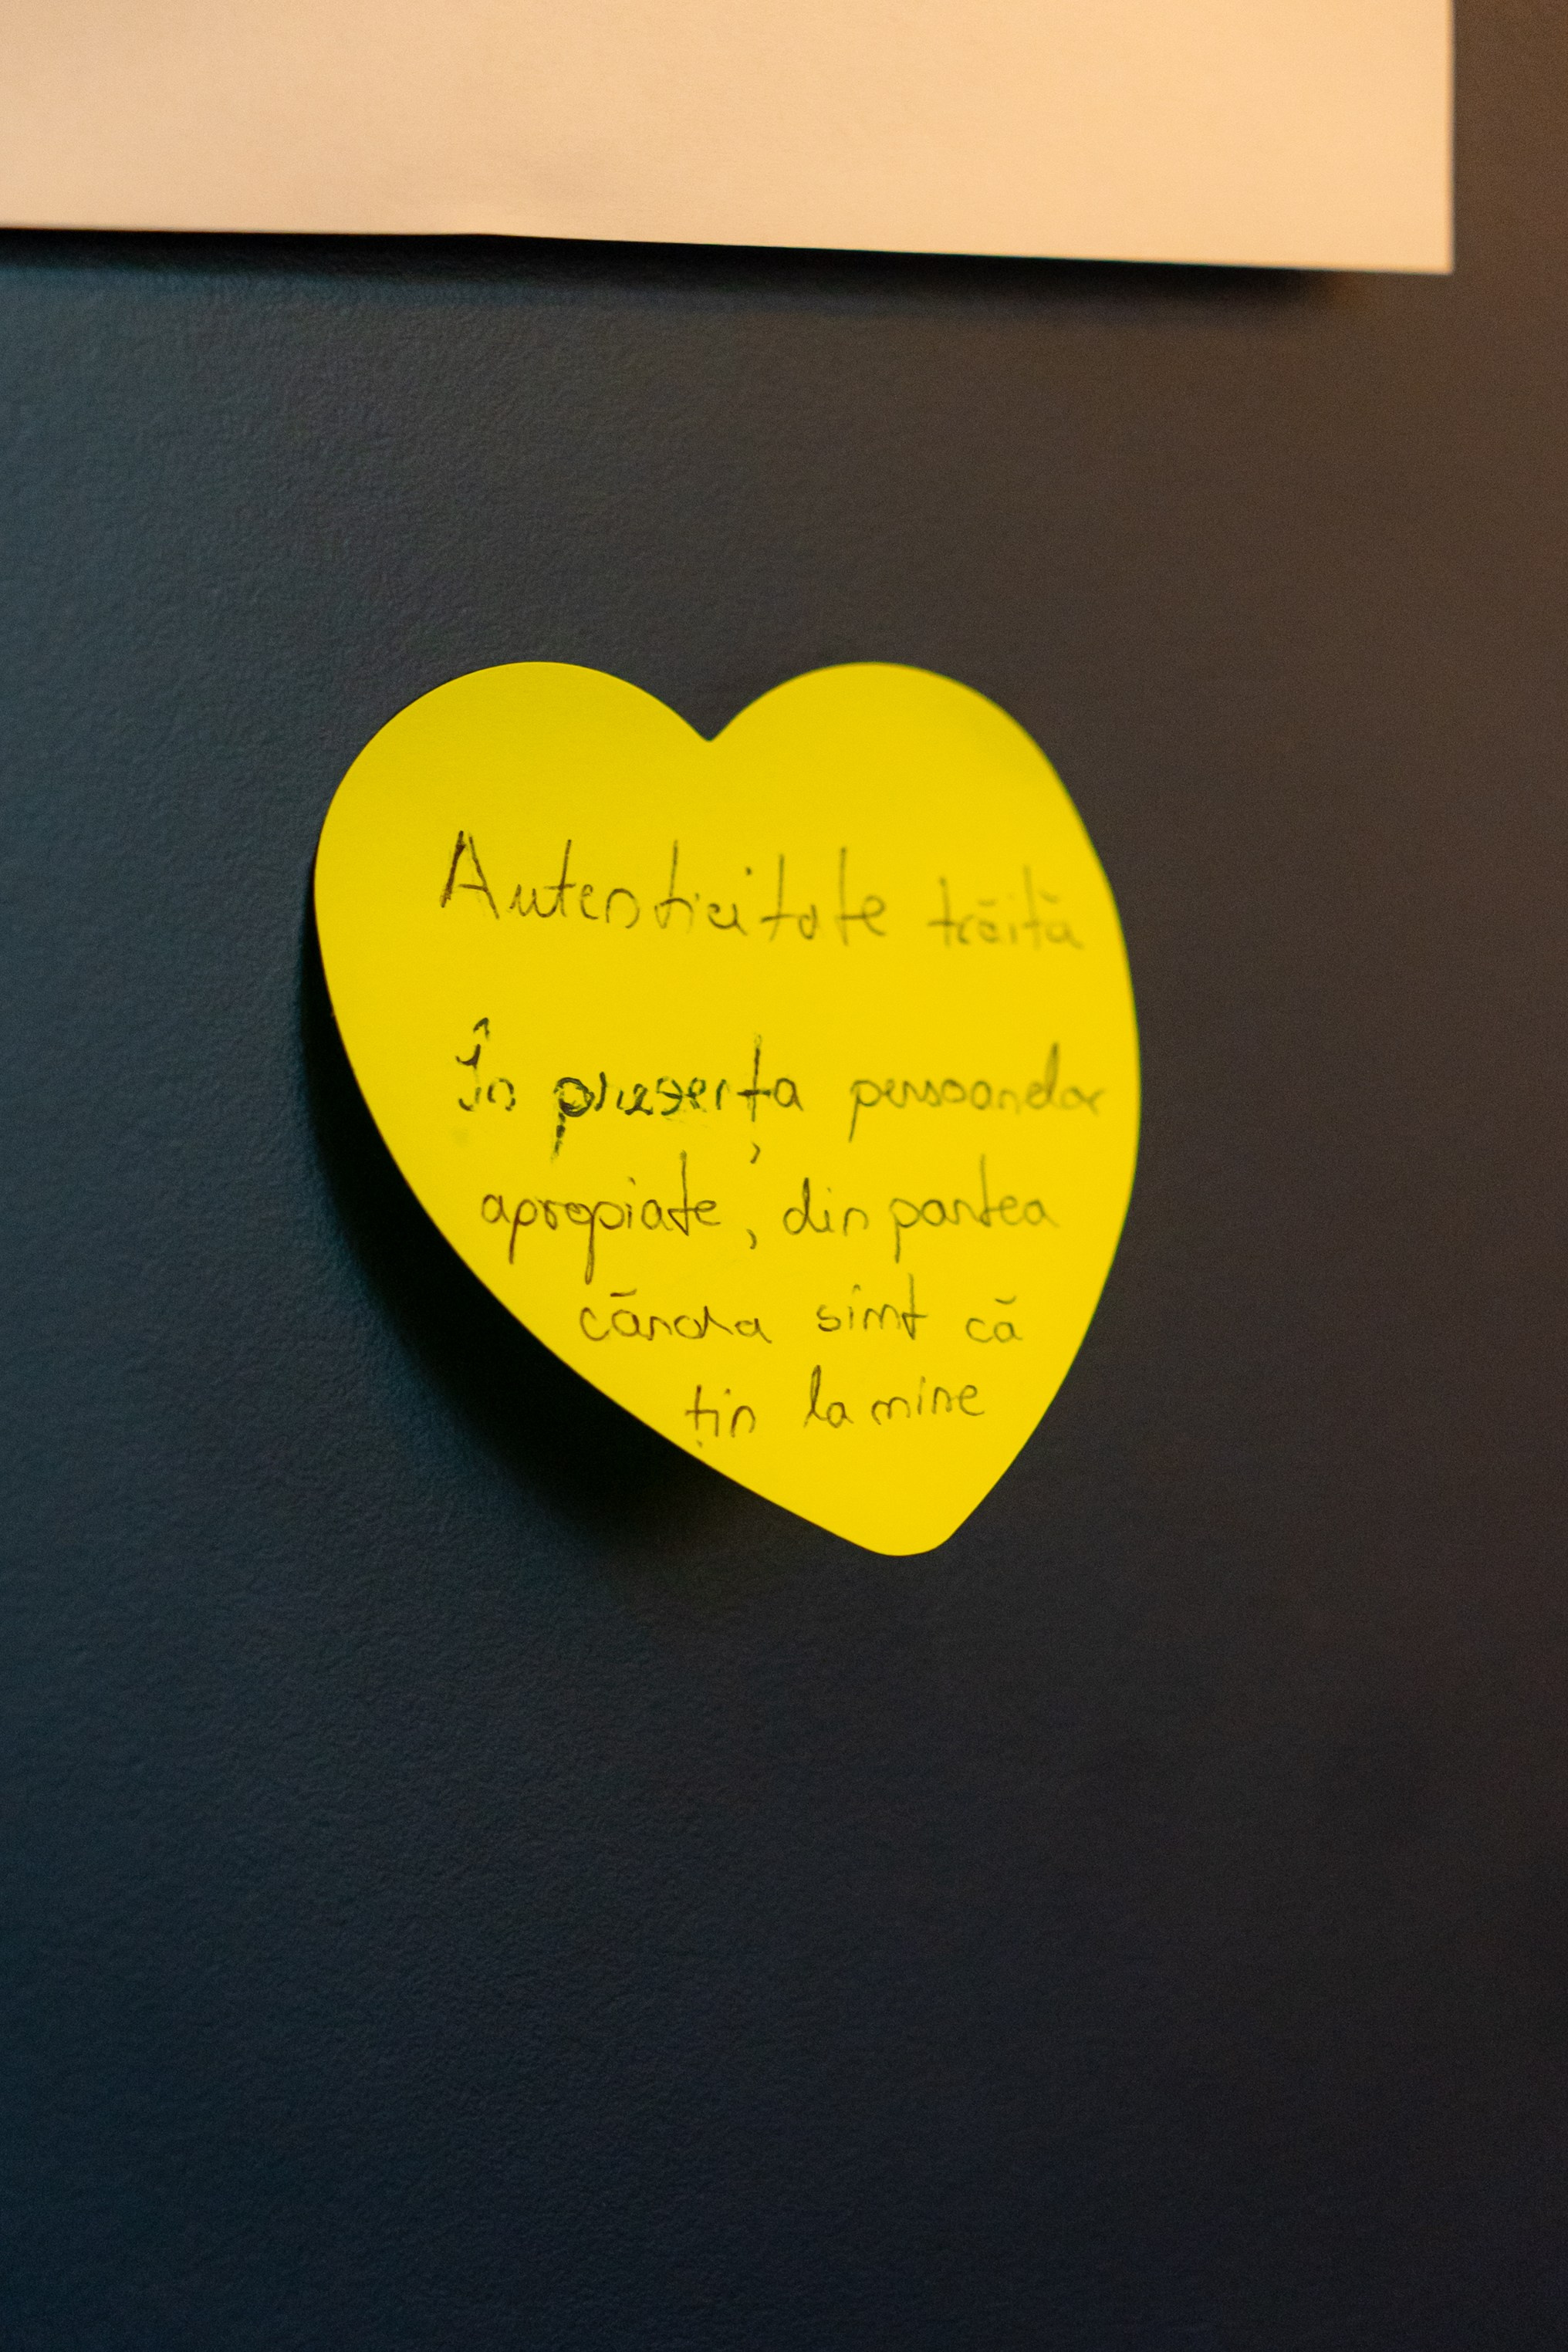 Autenticitate trăită
În prezența persoanelor
apropiate, din partea
cărora simt că
țin la mine